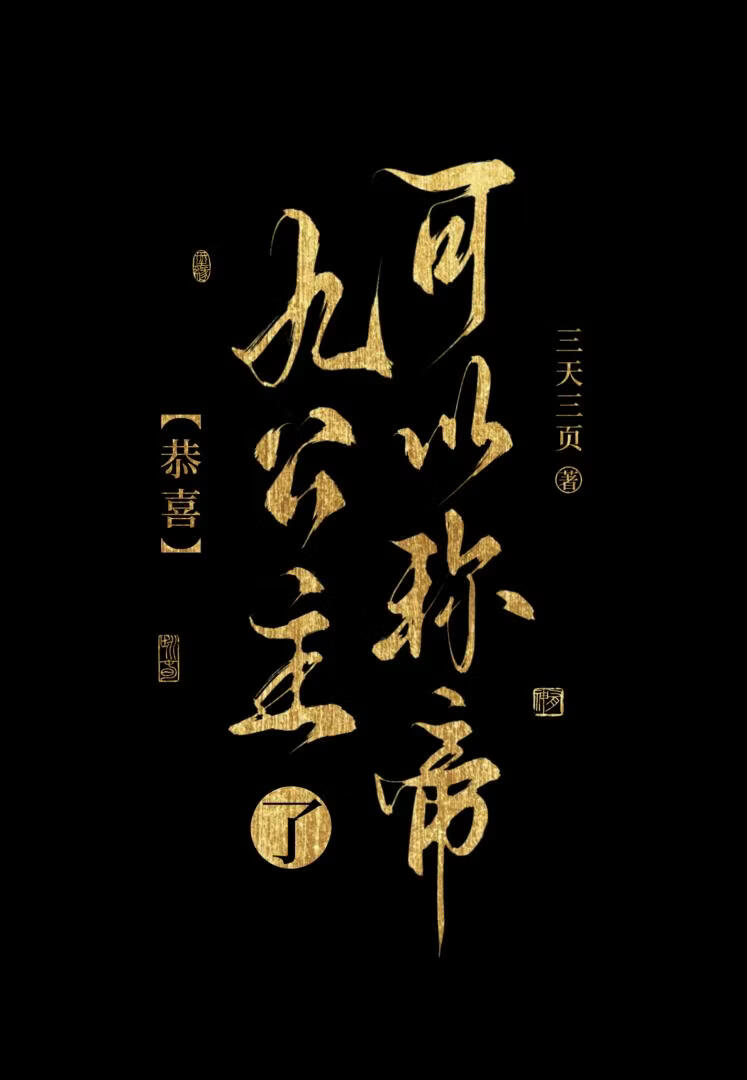 【恭喜】
九公主了
可以称帝
三天三页 著